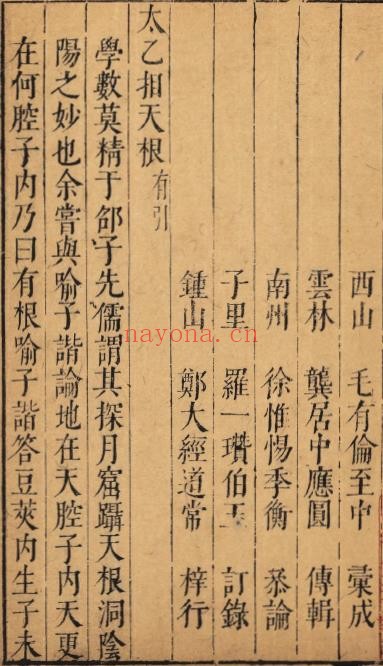 西山 毛有倫至中 彚成
雲林 龔居中應圓 傳輯
南州 徐惟惕季衡 叅論
子里 羅一瓚伯玉 訂錄
鍾山 鄭大經道常 梓行
太乙扣天根 有引
學數莫精于邵子先儒謂其探月窟躡天根洞陰
陽之妙也余嘗與喻子諧論地在天腔子內天更
在何腔子內乃曰有根喻子諧答豆莢內生子未
nayona.cn